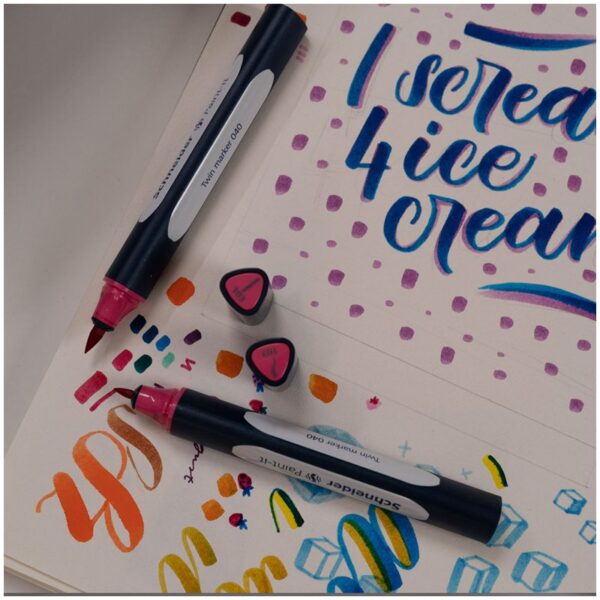 I screa
4 ice
crean
Schneider Paint-It
Twin marker 040
Twin marker 040
Schneider Paint-It